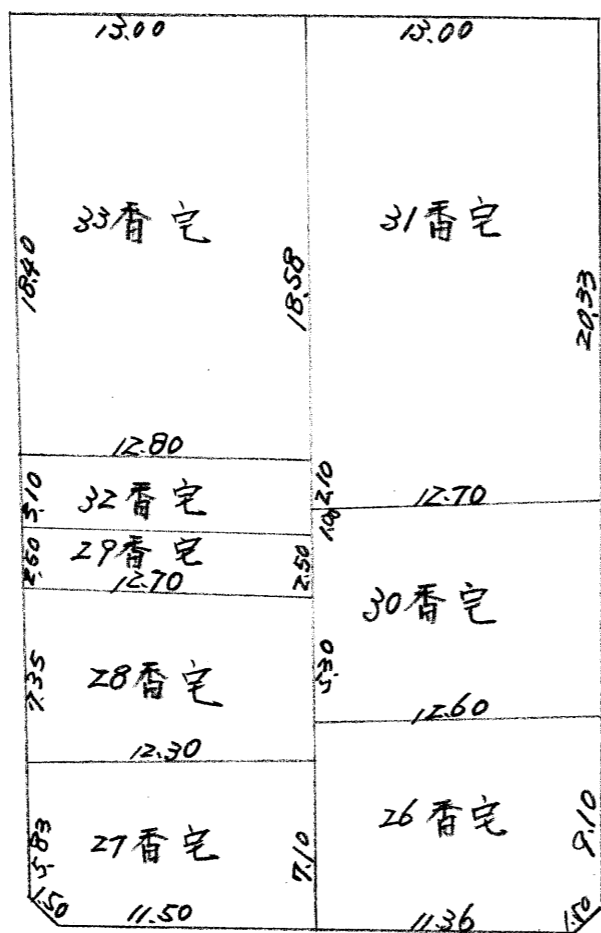 13.00
13.00
33番宅
31番宅
18.40
18.58
20.33
12.80
3.10
32番宅
2.10
12.70
1.00
2.60
29番宅
12.70
2.50
30番宅
7.35
28番宅
5.30
12.60
12.30
5.83
27番宅
7.10
26番宅
9.10
1.50
11.50
11.36
1.50